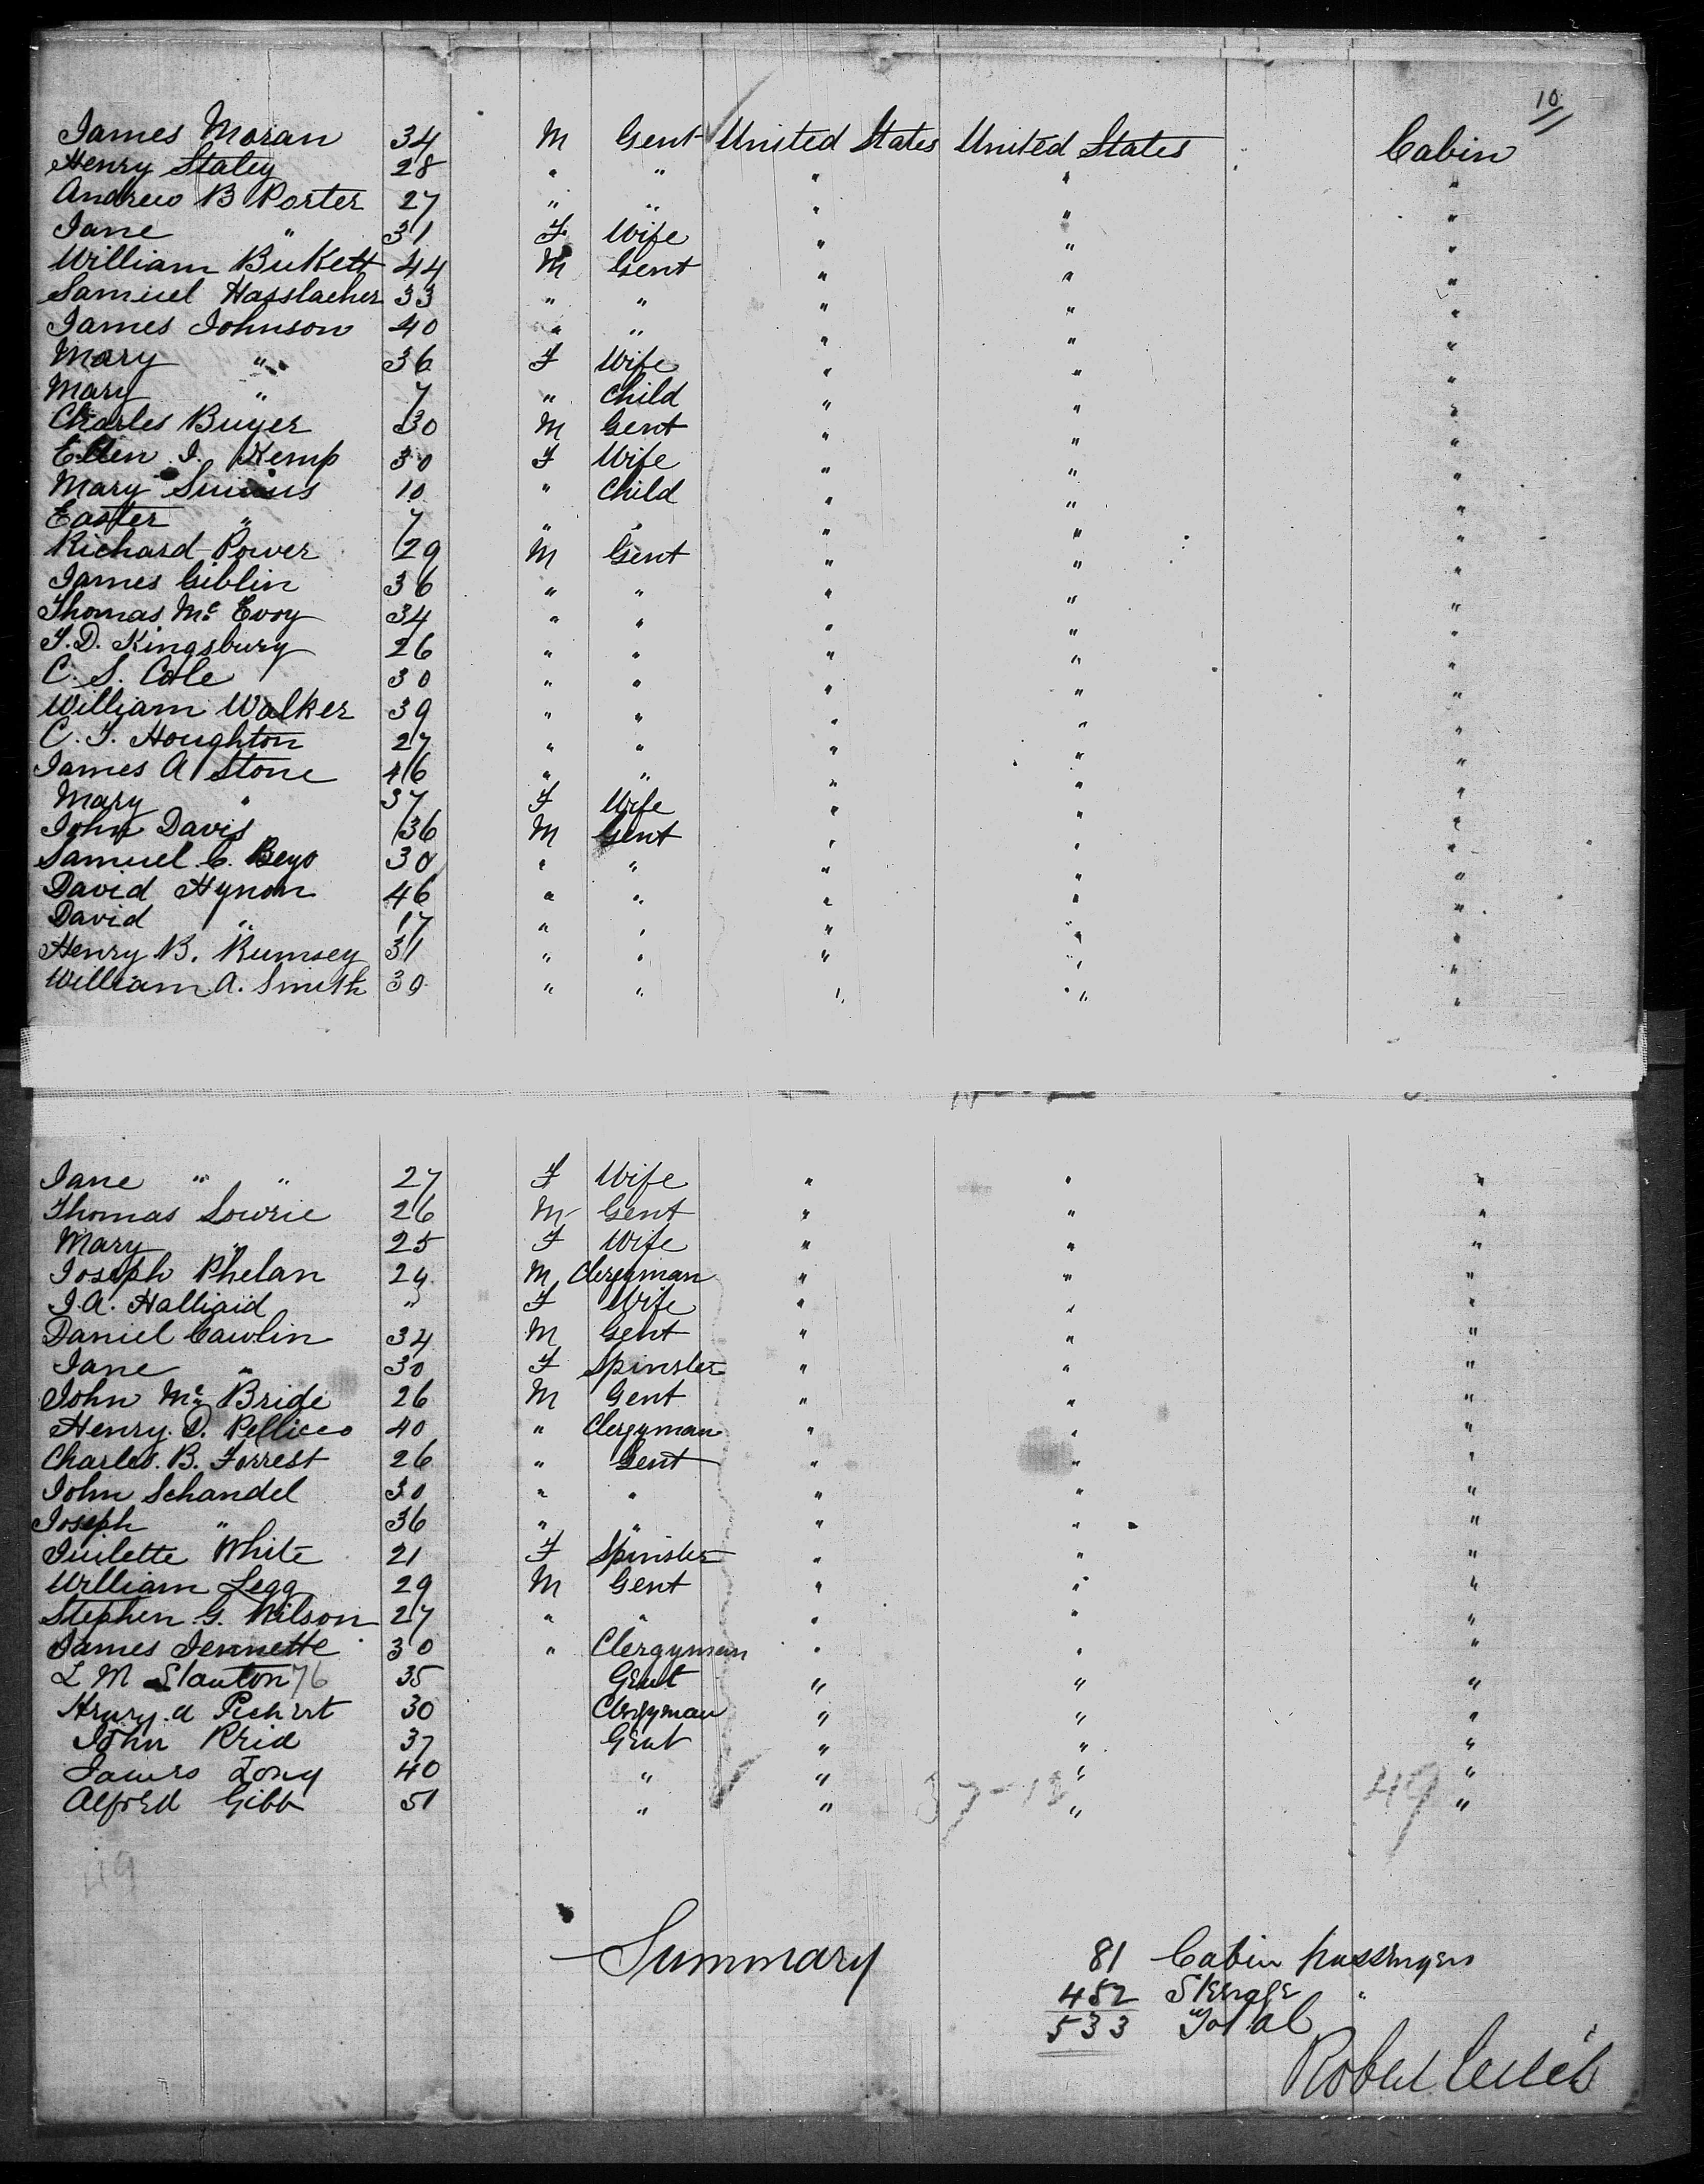 10
James Moran 34 M Gent United States United States Cabin
Henry Staley 28 " " " " "
Andrew B Porter 27 " " " " "
Jane " 31 F Wife " " "
William Bukett 44 M Gent " " "
Samuel Hasslacher 33 " " " " "
James Johnson 40 " " " " "
Mary " 36 F Wife " " "
Mary " 7 " Child " " "
Charles Buyer 30 M Gent " " "
Ellen J. Kemp 30 F Wife " " "
Mary 10 " Child " " "
Easter " 7 " " " " "
Richard Power 29 M Gent " " "
James Giblin 36 " " " " "
Thomas Mc Evoy 34 " " " " "
T. D. Kingsbury 26 " " " " "
C. S. Cole 30 " " " " "
William Walker 39 " " " " "
C. T. Houghton 27 " " " " "
James A Stone 46 " " " " "
Mary " 37 F Wife " " "
John Davis 36 M Gent " " "
Samuel C. Beyo 30 " " " " "
David Hynon 46 " " " " "
David " 17 " " " " "
Henry B. Rumsey 31 " " " " "
William A. Smith 30 " " " " "
Jane " " 27 F Wife " " "
Thomas Lowrie 26 M Gent " " "
Mary " 25 F Wife " " "
Joseph Phelan 24 M Clergyman " " "
J. A. Halliaid " F Wife " " "
Daniel Cawlin 34 M Gent " " "
Jane " 30 F Spinster " " "
John Mc Bride 26 M Gent " " "
Henry. D. Pelliceo 40 " Clergyman " " "
Charles. B. Forrest 26 " Gent " " "
John Schandel 30 " " " " "
Joseph " 36 " " " " "
Juilette White 21 F Spinster " " "
William Legg 29 M Gent " " "
Stephen G. Wilson 27 " " " " "
James Jennette 30 " Clergyman " " "
L M Stanton 76 35 Gent " " "
Henry. A Pichert 30 Clergyman " " "
John Reid 37 Gent " " "
James Long 40 " " " "
Alfred Gibb 51 " " 37-12 " 49 "
49
Summary
81 Cabin Passengers
452 Steerage "
533 Total